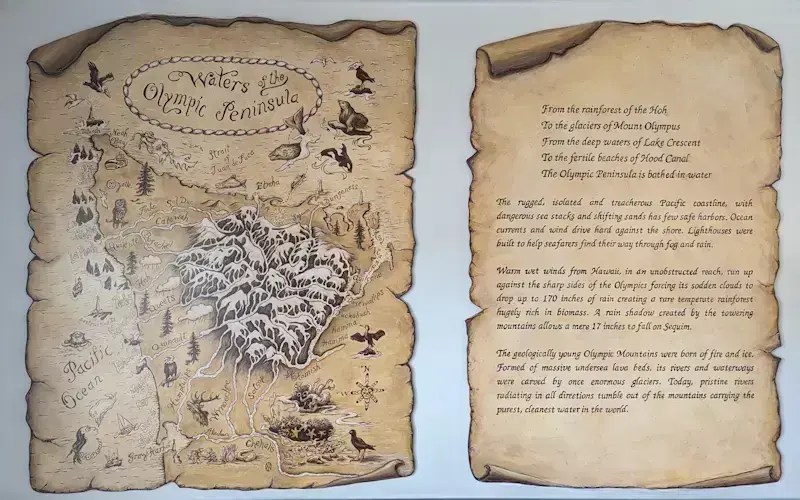 Waters of the
Olympic Peninsula
Neah
Strait
Juan de Fuca
Elwha
Dungeness
Ozette
Sol Duc
Calawah
Bogachiel
Hoh
Queets
Quinault
Pacific
Ocean
Skokomish
Satsop
Chehalis
Grays Harbor
N
W
E
S
From the rainforest of the Hoh
To the glaciers of Mount Olympus
From the deep waters of Lake Crescent
To the fertile beaches of Hood Canal
The Olympic Peninsula is bathed in water
The rugged, isolated and treacherous Pacific coastline, with
dangerous sea stacks and shifting sands has few safe harbors. Ocean
currents and wind drive hard against the shore. Lighthouses were
built to help seafarers find their way through fog and rain.
Warm wet winds from Hawaii, in an unobstructed reach, run up
against the sharp sides of the Olympics forcing its sodden clouds to
drop up to 170 inches of rain creating a rare temperate rainforest
hugely rich in biomass. A rain shadow created by the towering
mountains allows a mere 17 inches to fall on Sequim.
The geologically young Olympic Mountains were born of fire and ice.
Formed of massive undersea lava beds, its rivers and waterways
were carved by once enormous glaciers. Today, pristine rivers
radiating in all directions tumble out of the mountains carrying the
purest, cleanest water in the world.